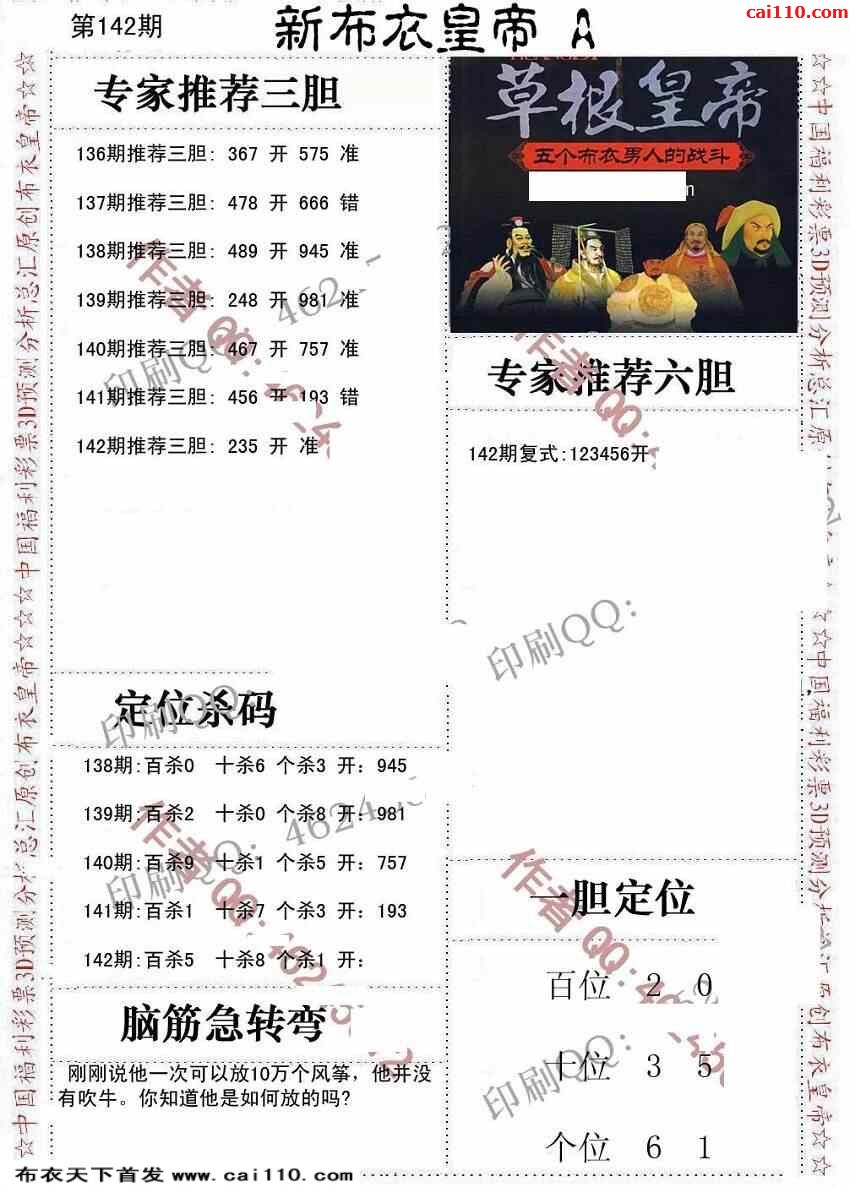 cai110.com
第142期
新布衣皇帝 A
专家推荐三胆
136期推荐三胆: 367 开 575 准
137期推荐三胆: 478 开 666 错
138期推荐三胆: 489 开 945 准
139期推荐三胆: 248 开 981 准
140期推荐三胆: 467 开 757 准
141期推荐三胆: 456 开 193 错
142期推荐三胆: 235 开 准
草根皇帝
五个布衣男人的战斗
专家推荐六胆
142期复式:123456开
定位杀码
138期:百杀0 十杀6 个杀3 开: 945
139期:百杀2 十杀0 个杀8 开: 981
140期:百杀9 十杀1 个杀5 开: 757
141期:百杀1 十杀7 个杀3 开: 193
142期:百杀5 十杀8 个杀1 开:
脑筋急转弯
刚刚说他一次可以放10万个风筝，他并没
有吹牛。你知道他是如何放的吗?
一胆定位
百位 2 0
十位 3 5
个位 6 1
布衣天下首发 www.cai110.com
☆中国福利彩票3D预测分析总汇原创布衣皇帝☆
☆中国福利彩票3D预测分析总汇原创布衣皇帝☆
☆中国福利彩票3D预测分析总汇原
☆中国福利彩票3D预测分
创布衣皇帝☆
作者QQ:
印刷QQ: 462
作者QQ:
印刷QQ:
印刷QQ:
作者QQ:
印刷QQ: 4624
作者QQ:
印刷QQ: